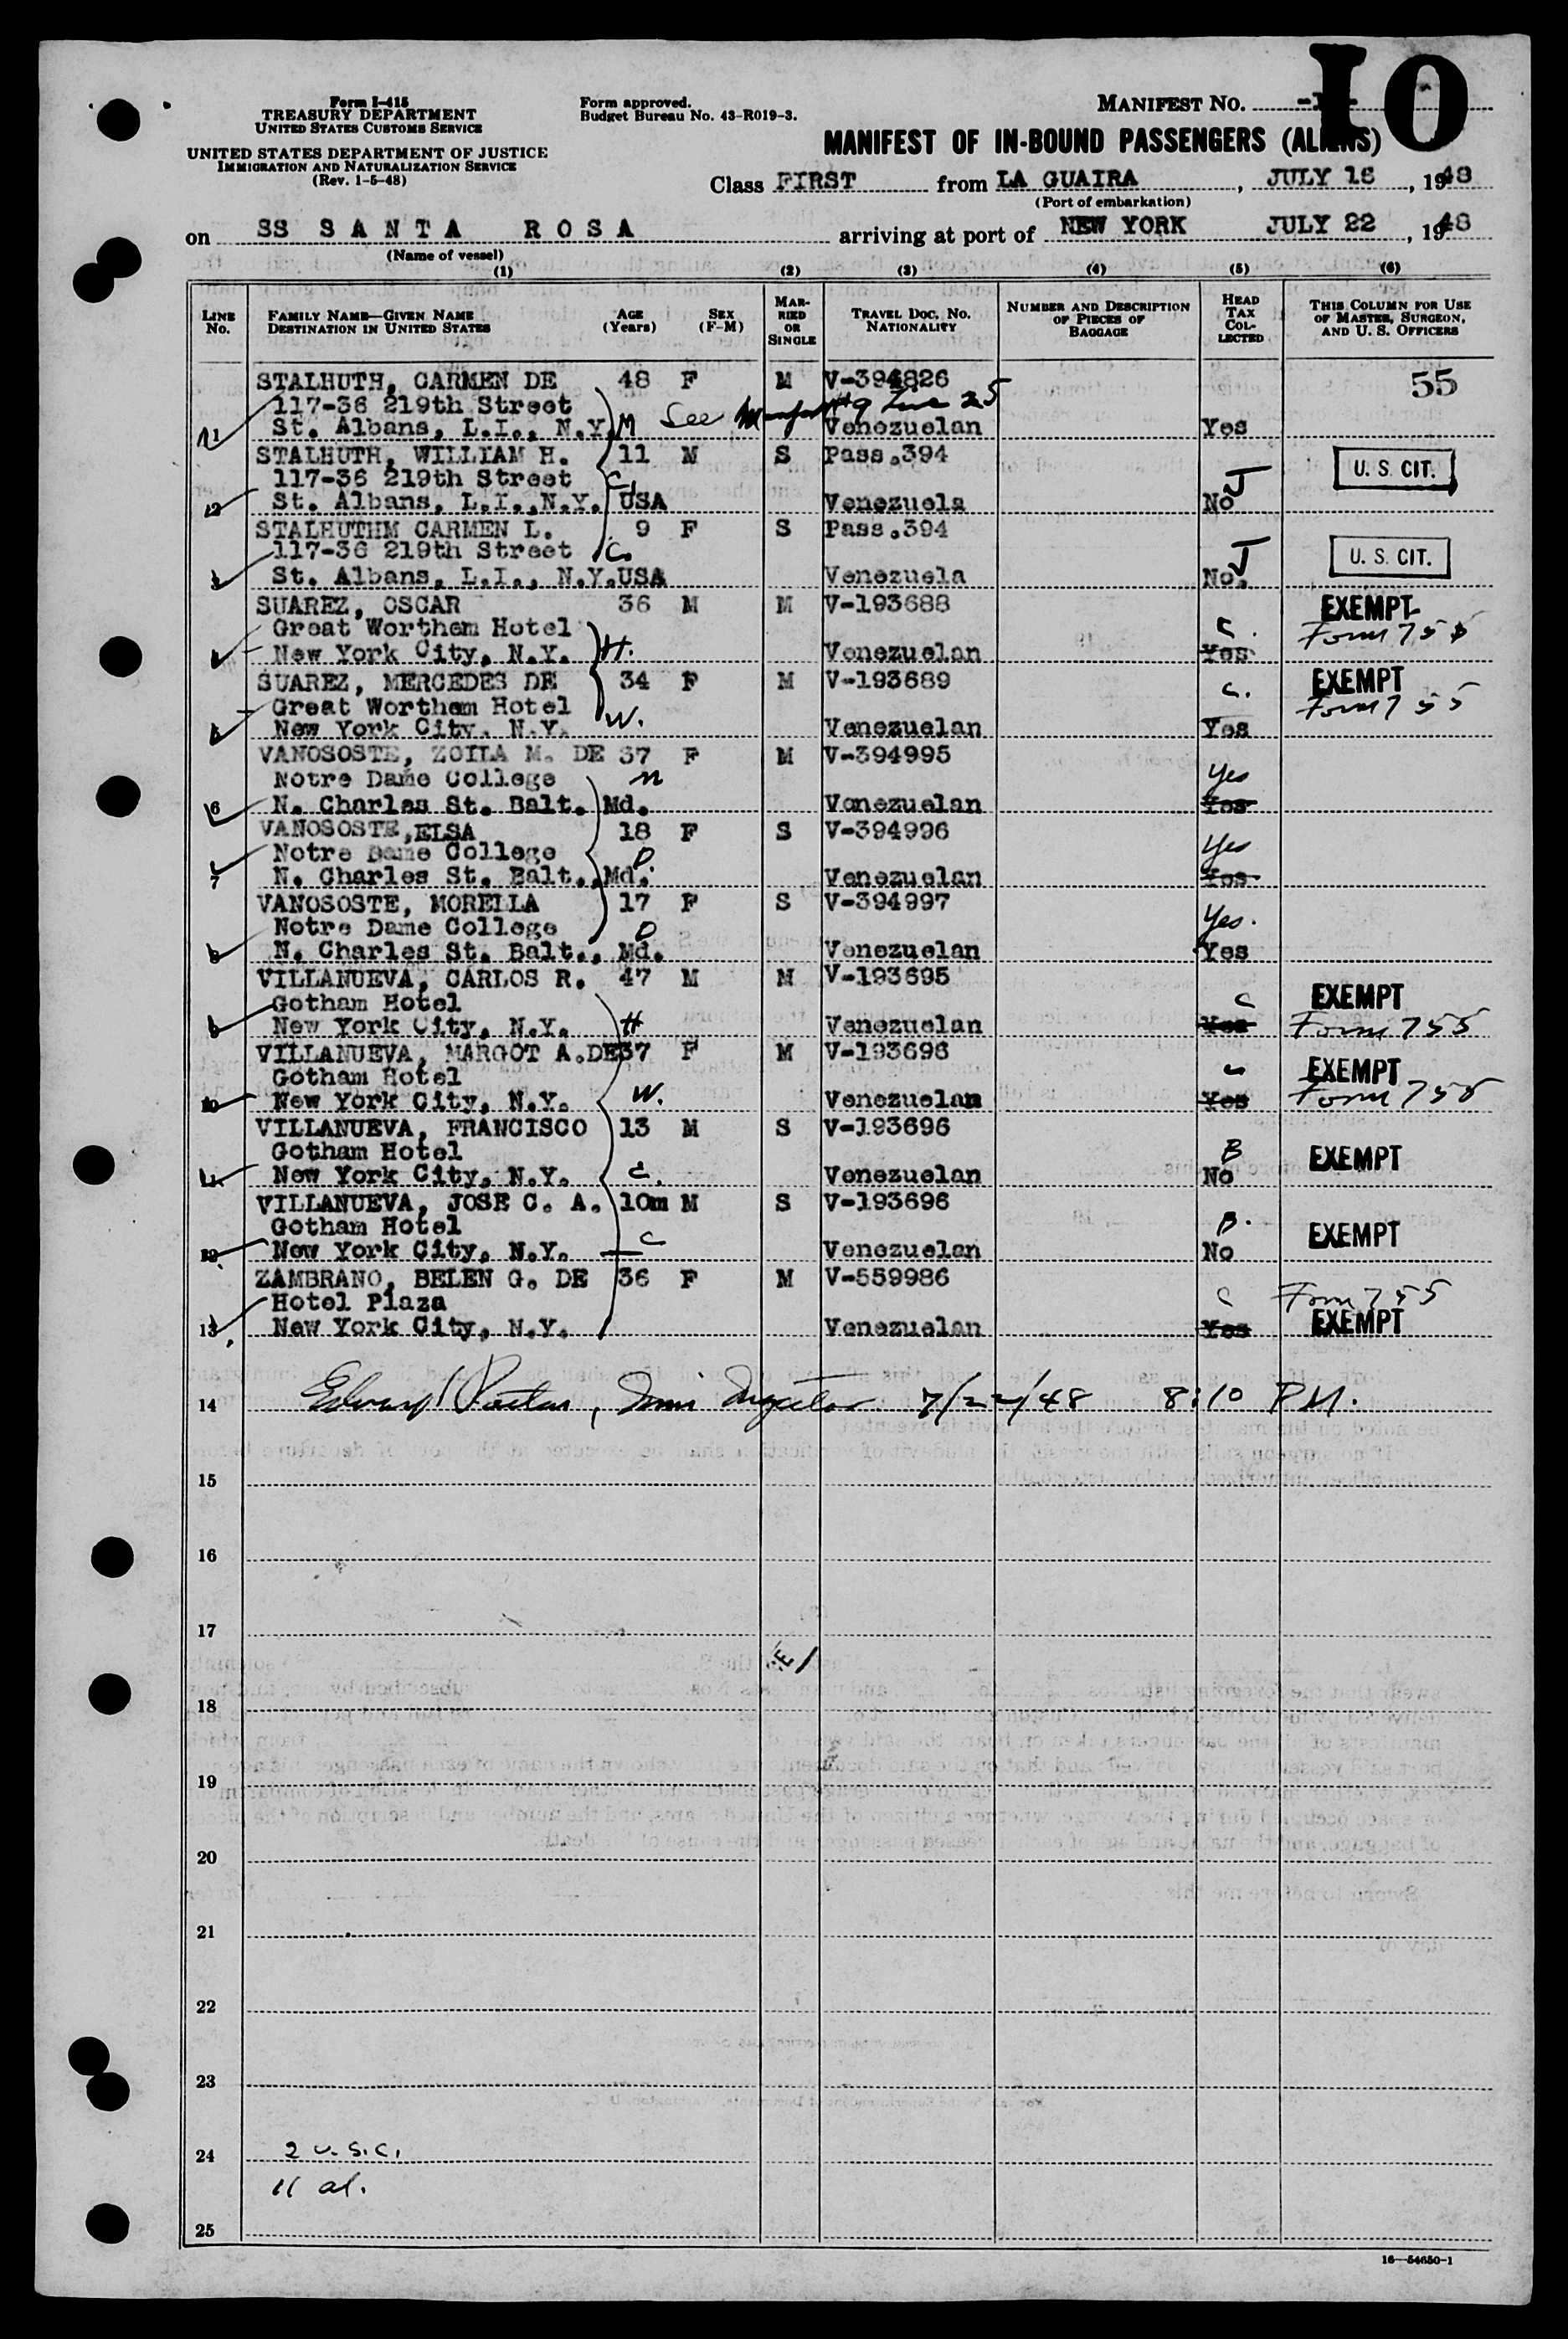 10
Form I-415
TREASURY DEPARTMENT
UNITED STATES CUSTOMS SERVICE
UNITED STATES DEPARTMENT OF JUSTICE
IMMIGRATION AND NATURALIZATION SERVICE
(Rev. 1-5-48)
Form approved.
Budget Bureau No. 43-R019-3.
MANIFEST NO.
MANIFEST OF IN-BOUND PASSENGERS (ALIENS)
Class FIRST from LA GUAIRA, JULY 16, 1948
(Port of embarkation)
on SS SANTA ROSA arriving at port of NEW YORK JULY 22, 1948
(Name of vessel)
(1) (2) (3) (4) (5) (6)
LINE NO. FAMILY NAME—GIVEN NAME DESTINATION IN UNITED STATES AGE (Years) SEX (F-M) MARRIED OR SINGLE TRAVEL DOC. NO. NATIONALITY NUMBER AND DESCRIPTION OF PIECES OF BAGGAGE HEAD TAX COLLECTED THIS COLUMN FOR USE OF MASTER, SURGEON, AND U. S. OFFICERS
STALHUTH, CARMEN DE 48 F M V-394826 55
117-36 219th Street See Manifest #9 Line 25
1 St. Albans, L.I., N.Y. M Venezuelan Yes
STALHUTH, WILLIAM H. 11 M S Pass.394 U. S. CIT.
117-36 219th Street C. J
2 St. Albans, L.I.,N.Y. USA Venezuela No
STALHUTHM CARMEN L. 9 F S Pass.394 U. S. CIT.
117-36 219th Street C. J
3 St. Albans, L.I., N.Y.USA Venezuela No.
SUAREZ, OSCAR 36 M M V-193688 EXEMPT
Great Worthem Hotel C. Form 755
4 New York City, N.Y. H. Venezuelan Yes
SUAREZ, MERCEDES DE 34 F M V-193689 C. EXEMPT
Great Worthem Hotel W. Form 755
5 New York City, N.Y. Venezuelan Yes
VANOSOSTE, ZOILA M. DE 37 F M V-394995
Notre Dame College M Yes
6 N. Charles St. Balt. Md. Venezuelan Yes
VANOSOSTE,ELSA 18 F S V-394996
Notre Dame College D Yes
7 N. Charles St. Balt., Md. Venezuelan Yes
VANOSOSTE, MORELLA 17 F S V-394997
Notre Dame College D Yes.
8 N. Charles St. Balt., Md. Venezuelan Yes
VILLANUEVA, CARLOS R. 47 M M V-193695
Gotham Hotel C EXEMPT
9 New York City, N.Y. H Venezuelan Yes Form 755
VILLANUEVA, MARGOT A.DE37 F M V-193696
Gotham Hotel C EXEMPT
10 New York City, N.Y. W. Venezuelan Yes Form 755
VILLANUEVA, FRANCISCO 13 M S V-193696
Gotham Hotel B EXEMPT
11 New York City, N.Y. C. Venezuelan No
VILLANUEVA, JOSE C. A. 10m M S V-193696
Gotham Hotel B. EXEMPT
12 New York City, N.Y. C Venezuelan No
ZAMBRANO, BELEN G. DE 36 F M V-559986
Hotel Plaza C Form 755
13 New York City, N.Y. Venezuelan Yes EXEMPT
14 Edward 7/22/48 8:10 P.M.
15
16
17
18
19
20
21
22
23
24 2 U.S.C.
11 al.
25
16—54650-1